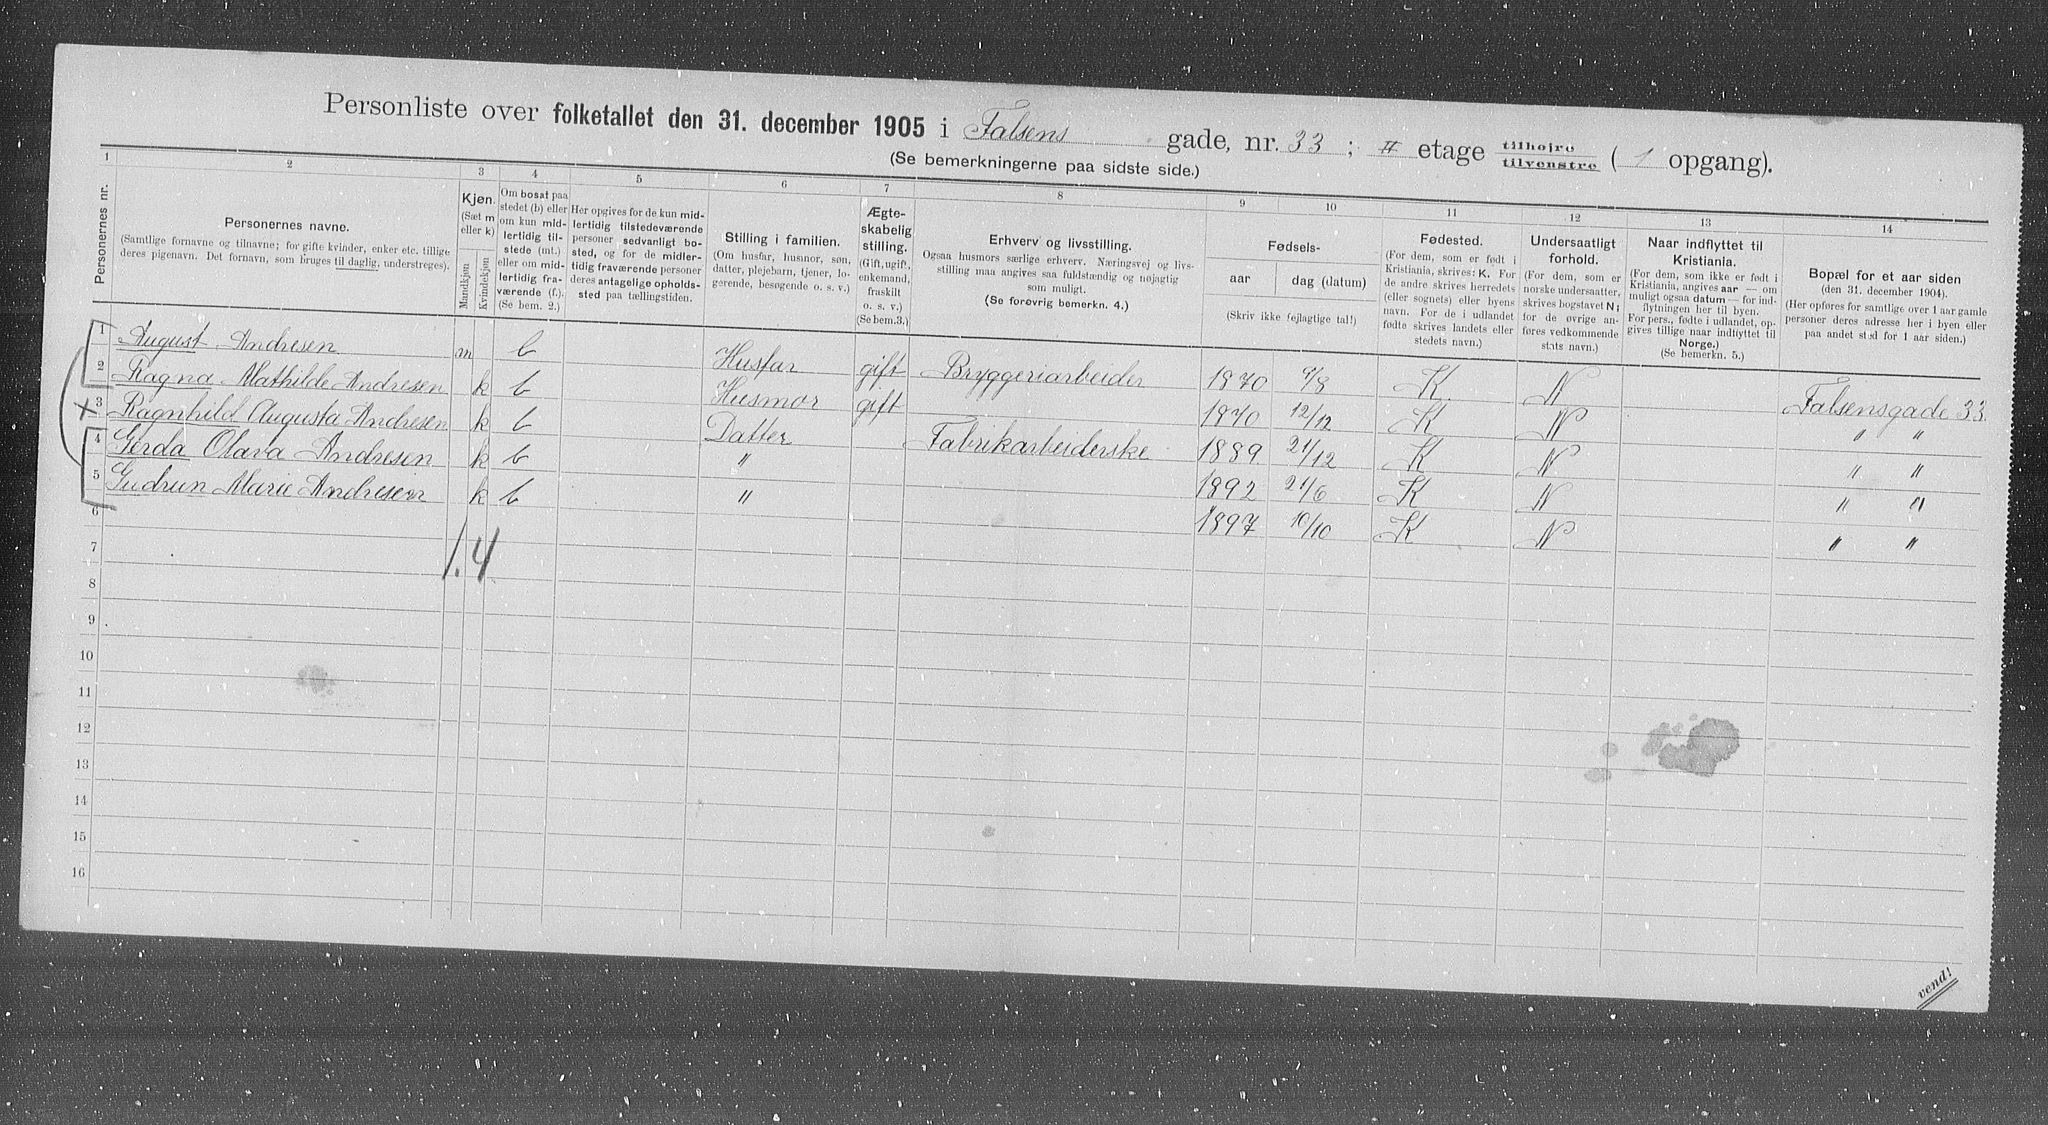 Personliste over folketallet den 31. december 1905 i Falsens gade, nr. 33 ; II etage tilhøjre tilvenstre ( 1 opgang).
(Se bemerkningerne paa sidste side.)
1 2 3 4 5 6 7 8 9 10 11 12 13 14
Personernes nr.
Personernes navne.
(Samtlige fornavne og tilnavne; for gifte kvinder, enker etc. tillige
deres pigenavn. Det fornavn, som bruges til daglig, understreges).
Kjøn.
(Sæt m
eller k)
Mandkjøn
Kvindekjøn
Om bosat paa
stedet (b) eller
om kun mid-
lertidig til-
stede (mt.)
eller om mid-
lertidig fra-
værende (f.).
(Se bem. 2.)
Her opgives for de kun mid-
lertidig tilstedeværende
personer sedvanligt bo-
sted, og for de midler-
tidig fraværende personer
deres antagelige opholds-
sted paa tællingstiden.
Stilling i familien.
(Om husfar, husmor, søn,
datter, plejebarn, tjener, lo-
gerende, besøgende o. s. v.)
Ægte-
skabelig
stilling.
(Gift, ugift,
enkemand,
fraskilt
o. s. v.)
(Se bem.3.)
Erhverv og livsstilling.
Ogsaa husmors særlige erhverv. Næringsvej og livs-
stilling maa angives saa fuldstændig og nøjagtig
som muligt.
(Se forøvrig bemerkn. 4.)
Fødsels-
aar dag (datum)
(Skriv ikke fejlagtige tal!)
Fødested.
(For dem, som er født i
Kristiania, skrives: K. For
de andre skrives herredets
(eller sognets) eller byens
navn. For de i udlandet
fødte skrives landets eller
stedets navn.)
Undersaatligt
forhold.
(For dem, som er
norske undersaatter,
skrives bogstavet N;
for de øvrige an-
føres vedkommende
stats navn.)
Naar indflyttet til
Kristiania.
(For dem, som ikke er født i
Kristiania, angives aar — om
muligt ogsaa datum — for ind-
flytningen her til byen.
For pers., fødte i udlandet, op-
gives tillige naar indflyttet til
Norge.)
(Se bemerkn. 5.)
Bopæl for et aar siden
(den 31. december 1904).
(Her opføres for samtlige over 1 aar gamle
personer deres adresse her i byen eller
paa andet sted for 1 aar siden.)
1 August Andresen m b Husfar gift Bryggeriarbeider 1870 9/8 K. N Falsensgade 33
2 Ragna Mathilde Andresen k b Husmor gift 1870 12/12 K N " "
3 x Ragnhild Augusta Andresen k b Datter Fabrikarbeiderske 1889 21/12 K N " "
4 Gerda Olava Andresen k b " 1892 21/6 K N " "
5 Gudrun Marie Andresen k b " 1897 10/10 K N " "
6
1.4
7
8
9
10
11
12
13
14
15
16
vend!